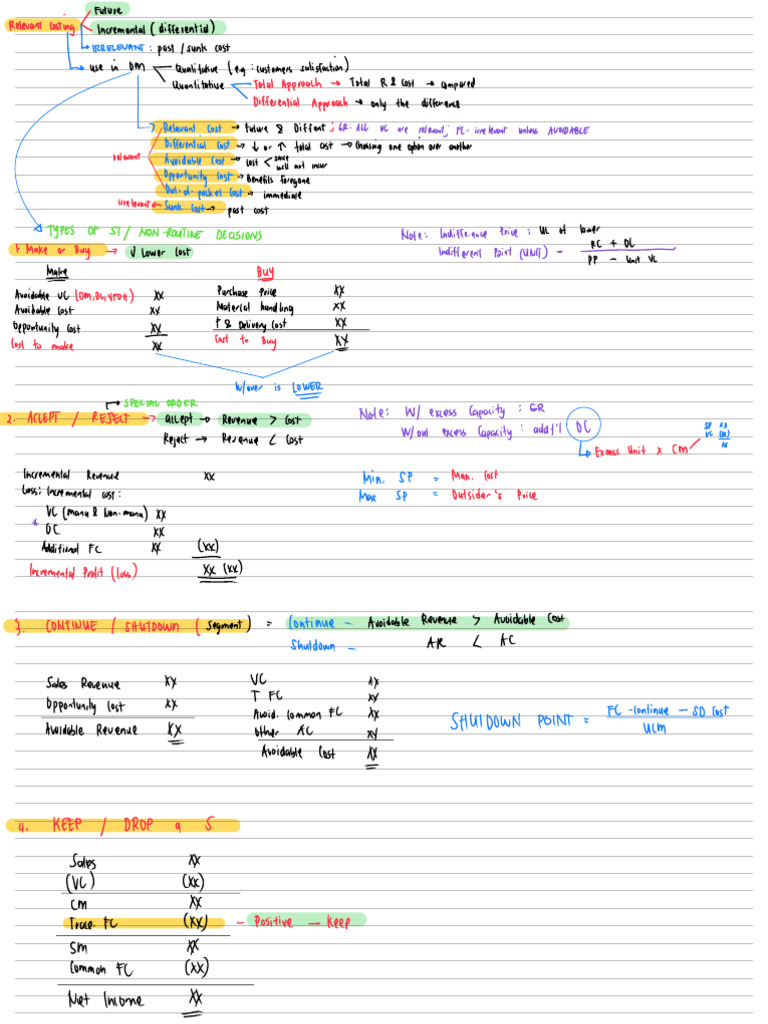 Future
Relevant Costing
Incremental (differential)
IRRELEVANT : past / sunk cost
use in DM
Qualitative (eg: customers satisfaction)
Quantitative
Total Approach → Total R & Cost → compared
Differential Approach → only the difference
Relevant Cost → future & Diffent ; GR: All VC are relevant; FC - irrelevant unless AVOIDABLE
Differential Cost → ↓ or ↑ total cost → Choosing one option over another
relevant
Avoidable Cost → cost < save
will not incur
Opportunity Cost → Benefits Foregone
Out-of-pocket Cost → immediate
irrelevant
Sunk Cost → past cost
TYPES OF ST / NON-ROUTINE DECISIONS
Note: Indifference Price : UC of lower
1. Make or Buy → ↓ Lower Cost
Indifferent Point (UNIT) = RC + OC
PP - Unit VC
Make
Buy
Avoidable VC (DM, DL, VFOH) XX
Purchase Price XX
Avoidable Cost XX
Material handling XX
Opportunity Cost XX
T & Delivery Cost XX
Cost to make XX
Cost to Buy XX
W/over is LOWER
→ SPECIAL ORDER
2. ACCEPT / REJECT → accept → Revenue > Cost
Reject → Revenue < Cost
Note: W/ excess Capacity : GR
W/out excess Capacity : add'l OC
SP XX
VC (XX)
XX
→ Excess Unit x CM
Incremental Revenue XX
Less: Incremental cost:
Min. SP = Max. Cost
Max SP = Outsider's Price
VC (manu & Non-manu) XX
*
OC XX
Additional FC XX (XX)
Incremental Profit (Loss) XX (XX)
3. CONTINUE / SHUTDOWN (Segment) = Continue - Avoidable Revenue > Avoidable Cost
Shutdown - AR < AC
Sales Revenue XX
VC XX
Opportunity Cost XX
T FC XX
Avoidable Revenue XX
Avoid. Common FC XX
other AC XX
Avoidable Cost XX
SHUTDOWN POINT = FC -continue - SD Cost
UCM
4. KEEP / DROP a S
Sales XX
(VC) (XX)
CM XX
Trace. FC (XX) - Positive - Keep
SM XX
Common FC (XX)
Net Income XX